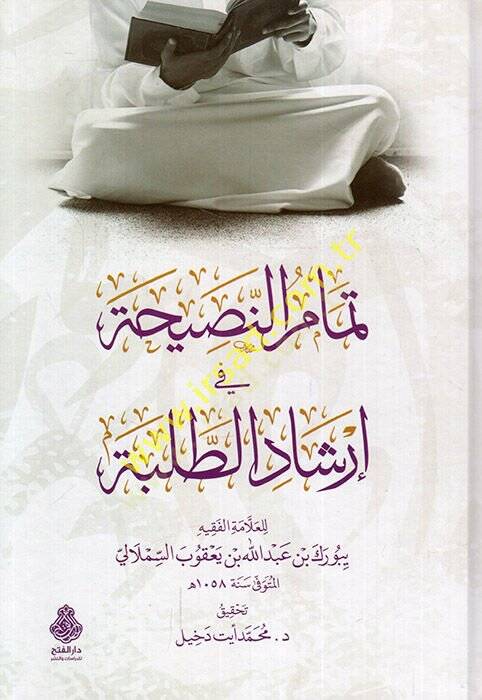 تمام النَّصِيحة
في
إرشاد الطَّلبة
للعلّامة الفقيه
يبورك بن عبد الله بن يعقوب السِّملالي
المتوفى سنة ١٠٥٨هـ
تحقيق
د. محمّد أيت دخيل
دار الفتح
للدراسات والنشر